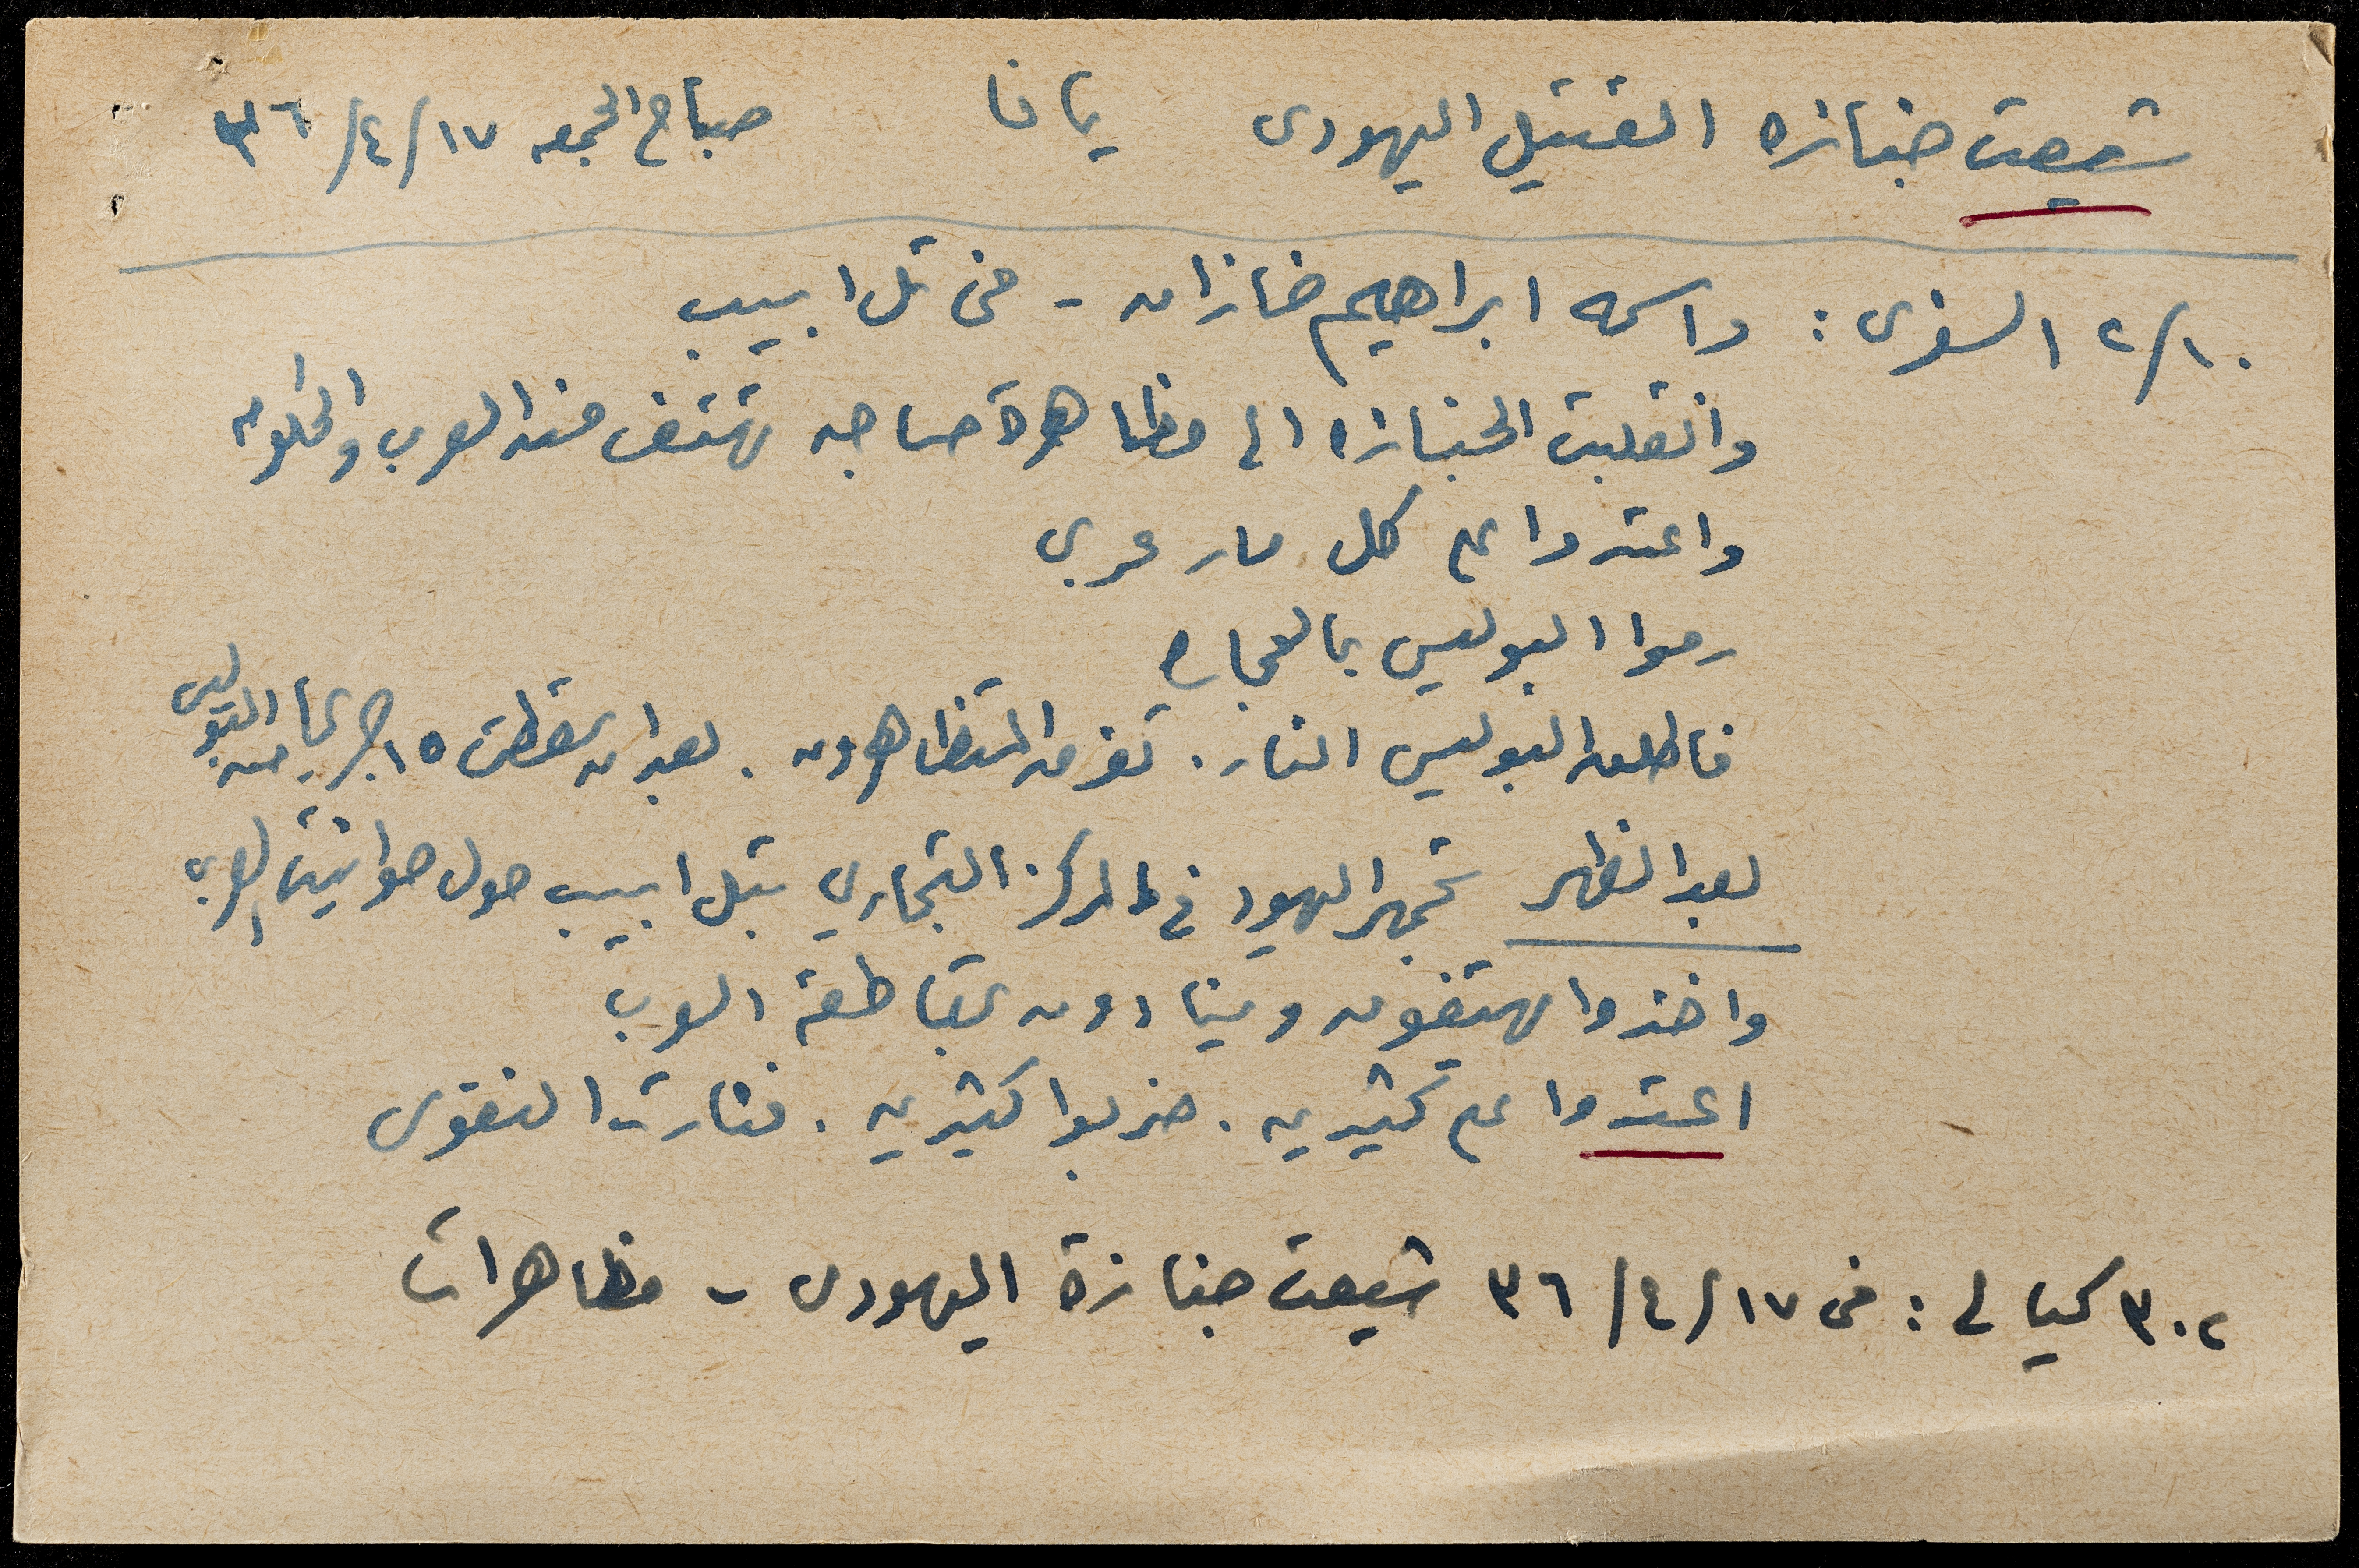 شيعت جنازه القتيل اليهودى يافا صباح الجمعه ١٧/٤/٣٦
٢/١٠ السفرى : واسمه ابراهيم خازان - فى تل ابيب
وانقلبت الجنازه الى مظاهرة صاخبه تهتف ضد العرب والحكومه
واعتدوا على كل مار عربي
رموا البوليس بالحجاره
فاطلق البوليس النار . تفرق المتظاهرون . بعد ان سقطت ١٥ جريحا من البوليس
بعد الظهر تجمهر اليهود في المركز التجاري بتل ابيب حول حوانيت العرب
واخذوا يهتفون وينادون بمقاطعة العرب
اعتدوا على كثيرين . ضربوا كثيرين . فثارت النفوس
٣٠٢ كيالي : فى ١٧/٤/٣٦ شيعت جنازة اليهودى - مظاهرات